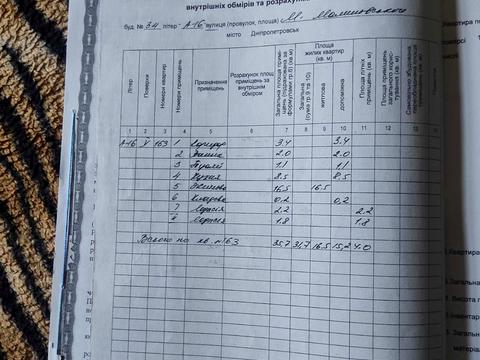 внутрішніх обмірів та розрахунк
буд. № 34 літер " А-16 вулиця (провулок, площа) М. Малиновського
місто Дніпропетровськ
Літер Поверхи Номери квартир Номери приміщень Призначення приміщень Розрахунок площ приміщень за внутрішнім обміром Загальна площа приміщень (підрахована за формулами гр.6) (кв. м) Площа жилих квартир (кв. м) Загальна (сума гр.9 та 10) житлова допоміжна Площа літніх приміщень (кв. м) Площа приміщень загального користування (кв. м)
1 2 3 4 5 6 7 8 9 10 11 12 13
А-16 V 163 1 Коридор 3.4 3.4
2 Ванна 2.0 2.0
3 Туалет 1.1 1.1
4 Кухня 8.5 8.5
5 Житлова 16.5 16.5
6 Кладова 0.2 0.2
7 Лоджія 2.2 2.2
8 Лоджія 1.8 1.8
Всього по кв. №163 35.7 31,7 16.5 15,2 4.0